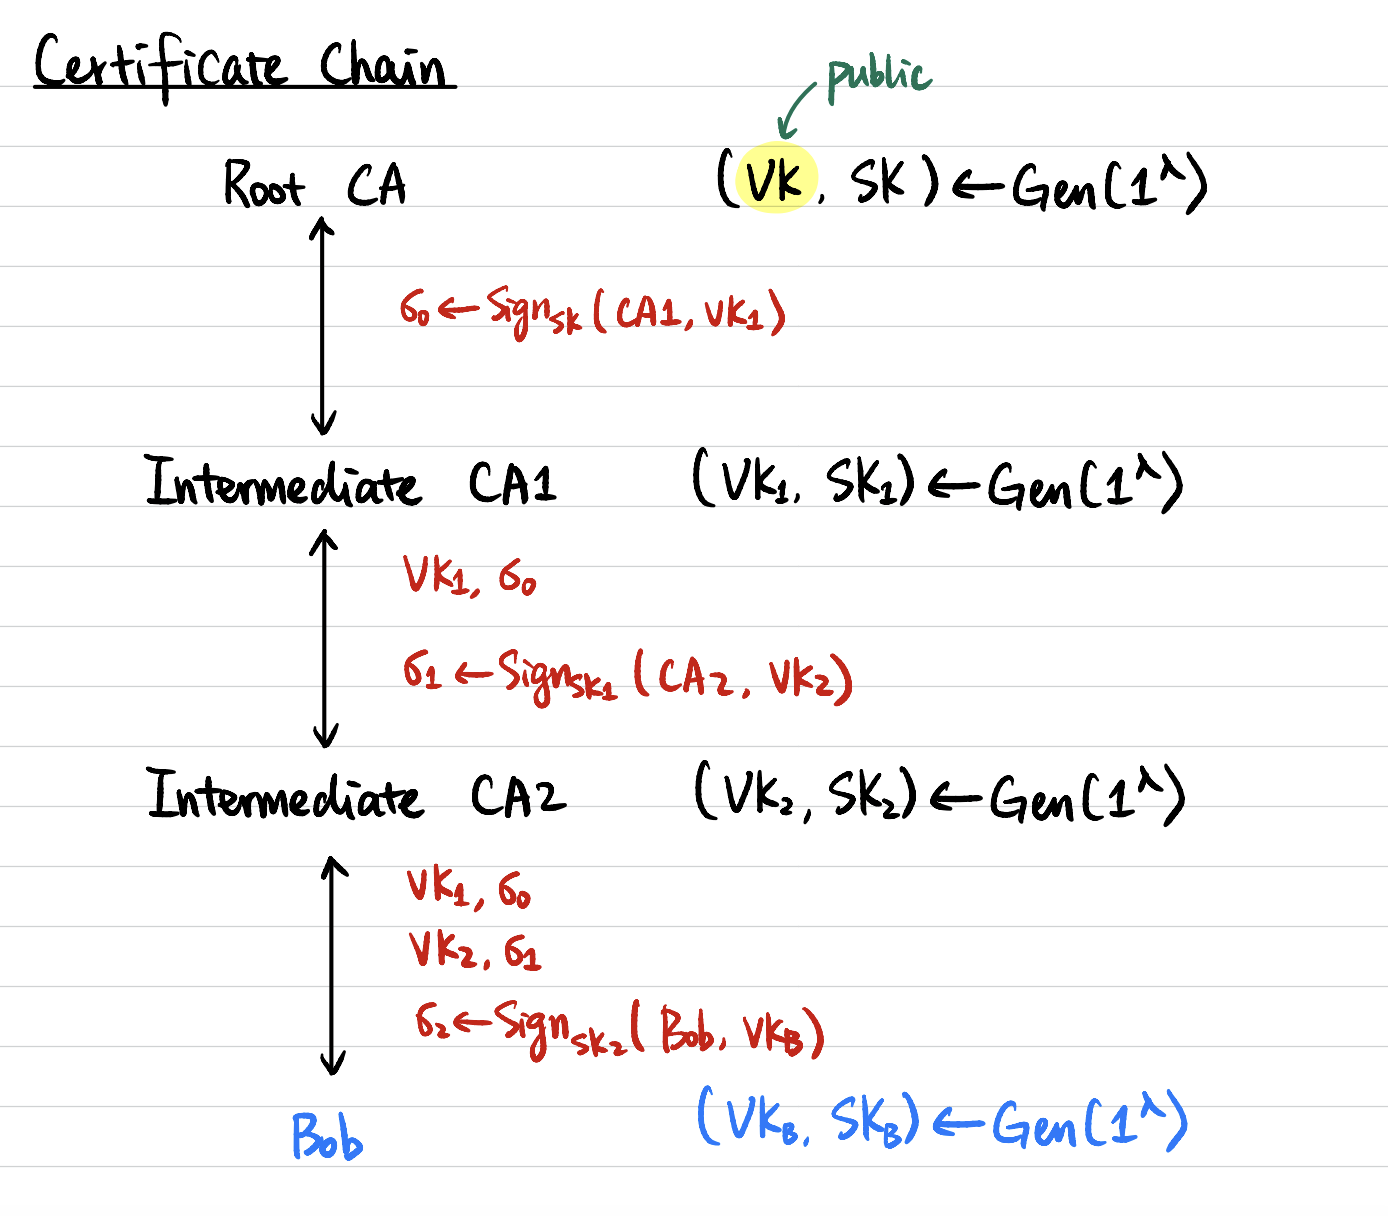 Certificate Chain
public
Root CA (VK, SK) ← Gen(1^λ)
σ₀ ← Sign_SK (CA1, VK₁)
Intermediate CA1 (VK₁, SK₁) ← Gen(1^λ)
VK₁, σ₀
σ₁ ← Sign_SK₁ (CA2, VK₂)
Intermediate CA2 (VK₂, SK₂) ← Gen(1^λ)
VK₁, σ₀
VK₂, σ₁
σ₂ ← Sign_SK₂ (Bob, VK_B)
Bob (VK_B, SK_B) ← Gen(1^λ)